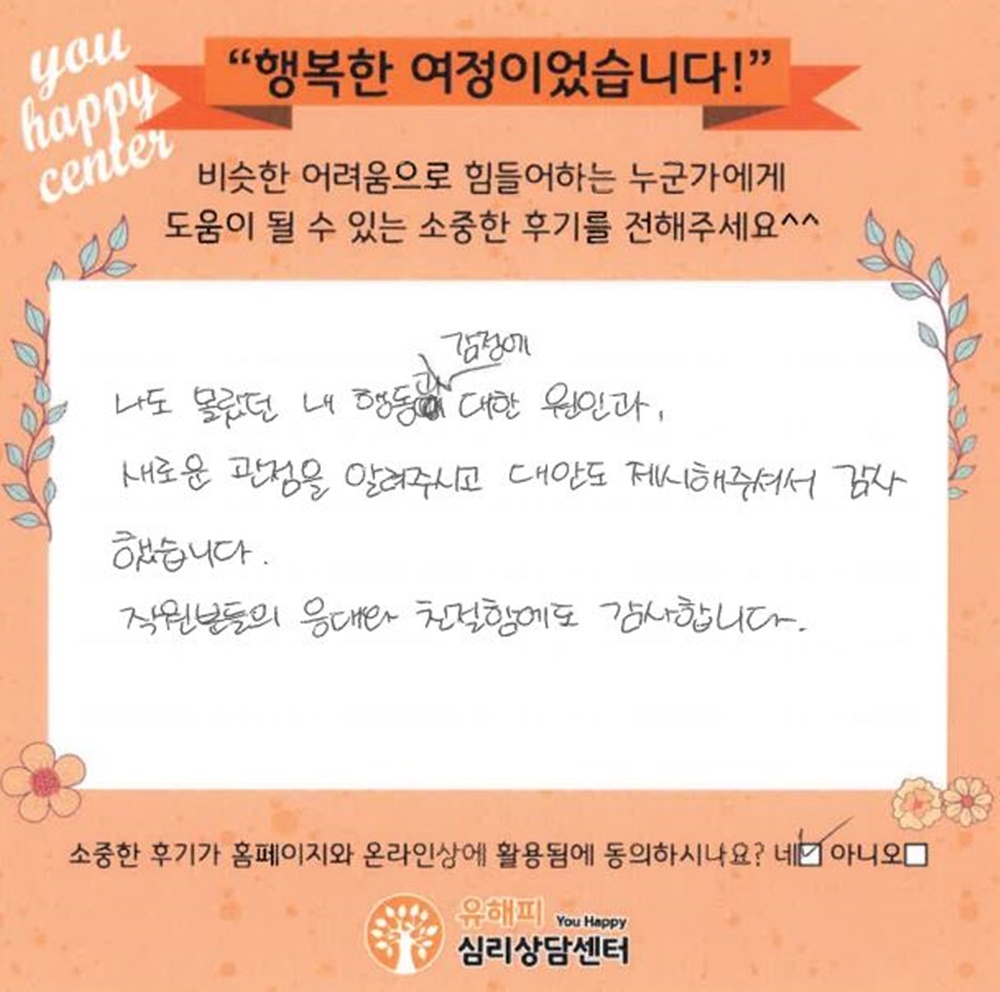 you
happy
center
“행복한 여정이었습니다!”
비슷한 어려움으로 힘들어하는 누군가에게
도움이 될 수 있는 소중한 후기를 전해주세요^^
나도 몰랐던 내 행동과 감정에 대한 원인과,
새로운 관점을 알려주시고 대안도 제시해주셔서 감사
했습니다.
직원분들의 응대와 친절함에도 감사합니다.
소중한 후기가 홈페이지와 온라인상에 활용됨에 동의하시나요? 네☑ 아니오☐
유해피 You Happy
심리상담센터